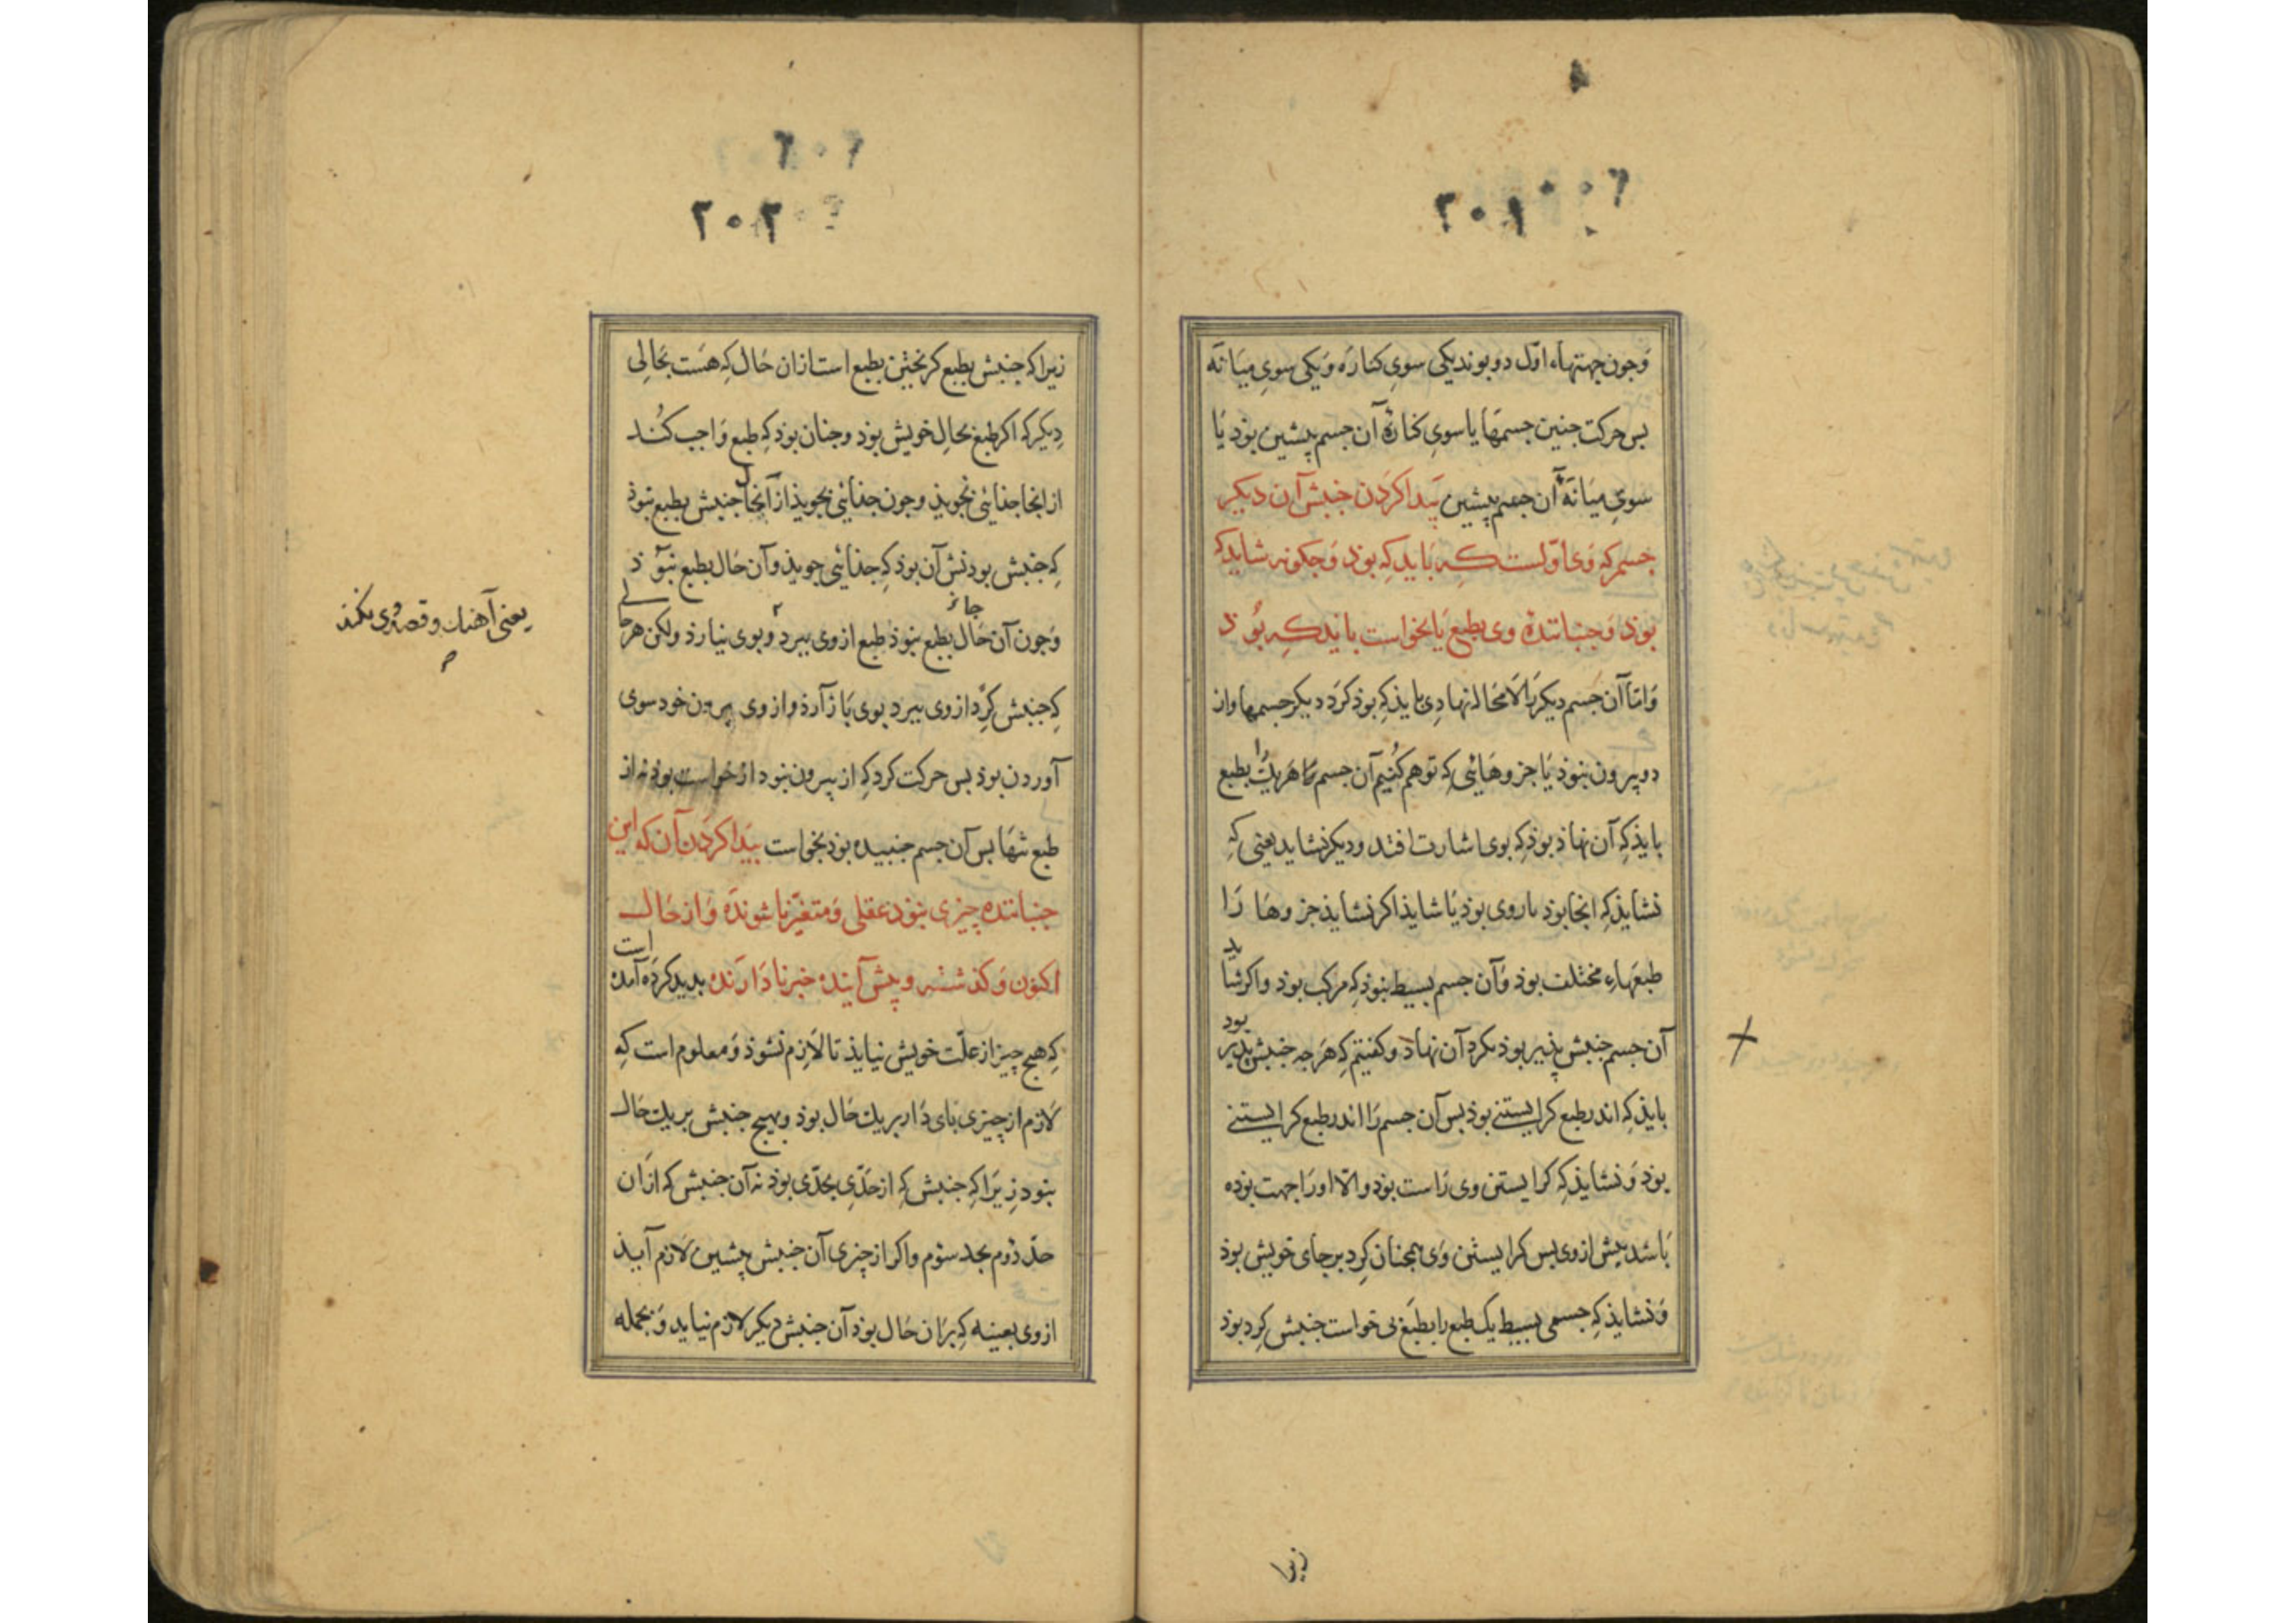 ۲۰۱
وجون جهتهاء اوّل دو بوند یکی سوی کناره و یکی سوی میانه
بس حرکت جنین جسمها یا سوی کناره آن جسم پیشین بوذ یا
سوی میانه آن جسم پیشین پیدا کردن جنبش آن دیکر
جسم که وی اوّلست که باید که بوذ و جکونه شاید که
بوذ و جنباننده وی بطبع یا بخواست بایذ که بوذ
و امّا آن جسم دیکر را لا محاله نهادی بایذ که بوذ کرد دیکر جسمها واز
دو بیرون نبوذ یا جزوهائی که توهم کنیم آن جسم را هر یک را بطبع
بایذ که آن نهاذ بوذ که بوی اشارت افتد و دیکر نشاید یعنی که
نشایذ که انجا بوذ با روی بوذ یا شایذ اکر نشایذ جزوها را
طبعهاء مختلف بوذ و آن جسم بسیط نبوذ که مرکب بوذ و اکر شاید
آن جسم جنبش پذیر بوذ بکرد آن نهاذ و کفتیم که هرجه جنبش پذیر بود
بایذ که اندر طبع کرایستنی بوذ بس آن جسم را اندر طبع کرایستنی
بوذ و نشایذ که کرایستن وی راست بوذ و الّا او را جهت بوده
باشد بیش از وی بس کرایستن وی همجنان کرد بر جای خویش بوذ
و نشایذ که جسمی بسیط یک طبع را بطبع بی خواست جنبش کرد بوذ
زیرا
۲۰۲
زیرا که جنبش بطبع کریختن بطبع است ازان حال که هست بحالی
دیکر که اکر طبع بحال خویش بوذ و جنان بوذ که طبع واجب کند
از انجا جذائی نجویذ و جون جذائی بجویذ از آنجا جنبش بطبع نبوذ
که جنبش بودنش آن بوذ که جذائی جویذ و آن حال بطبع نبوذ
وجون آن حال بطبع نبوذ طبع از وی ببرد و بوی نیارذ ولکن هر جائی
که جنبش کرد از وی ببرد بوی باز آرذ و از وی بیرون خود سوی
یعنی آهنک و قصد وی نکند
آوردن بوذ بس حرکت کرد که از بیرون نبود از خواست بوذ نه از
طبع تنها بس آن جسم جنبیده بوذ بخواست پیدا کردن آن که این
جنباننده چیزی نبوذ عقلی و متغیّر ناشونده و از حال
اکنون و کذشته و پیش آینده خبر نادارنده بدید کرده آمده است
که هیج چیز از علّت خویش نیایذ تا لازم نشوذ و معلوم است که
لازم از چیزی بای دار بریک حال بوذ و هیج جنبش بریک حال
نبود زیرا که جنبش که از حدّی بحدّی بوذ نه آن جنبش که از ان
حدّ دوم بحد سوم و اکر از چیزی آن جنبش پیشین لازم آیذ
از وی بعینه که بران حال بوذ آن جنبش دیکر لازم نیاید و بجمله